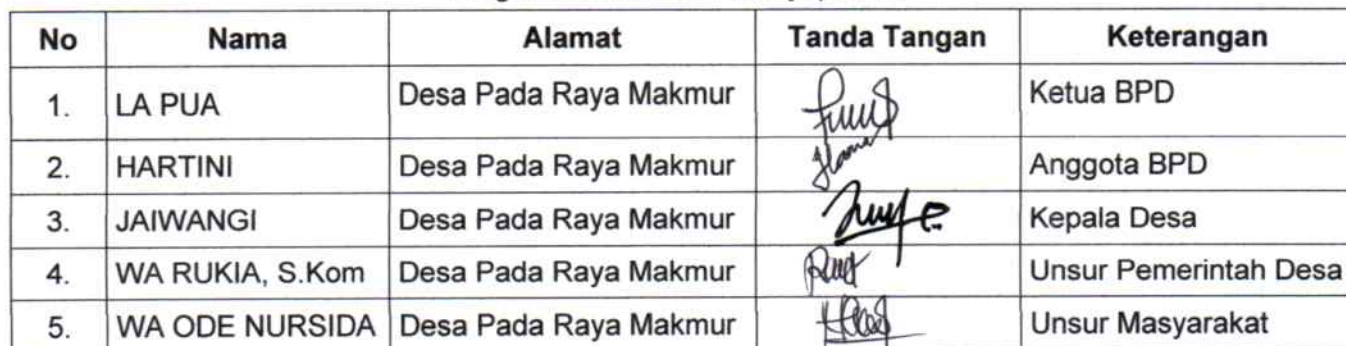 No Nama Alamat Tanda Tangan Keterangan
1. LA PUA Desa Pada Raya Makmur Ketua BPD
2. HARTINI Desa Pada Raya Makmur Anggota BPD
3. JAIWANGI Desa Pada Raya Makmur Kepala Desa
4. WA RUKIA, S.Kom Desa Pada Raya Makmur Unsur Pemerintah Desa
5. WA ODE NURSIDA Desa Pada Raya Makmur Unsur Masyarakat